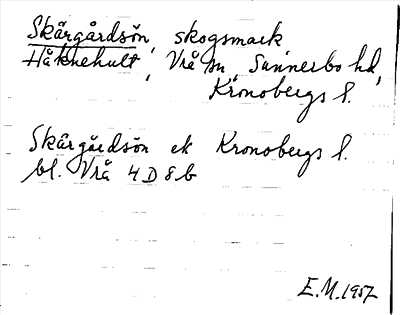 Skärgårdsön, skogsmark
Håknehult, Vrå sn, Sunnerbo hd,
Kronobergs l.
Skärgårdsön ek Kronobergs l.
bl. Vrå 4 D 8 b
E.M. 1957